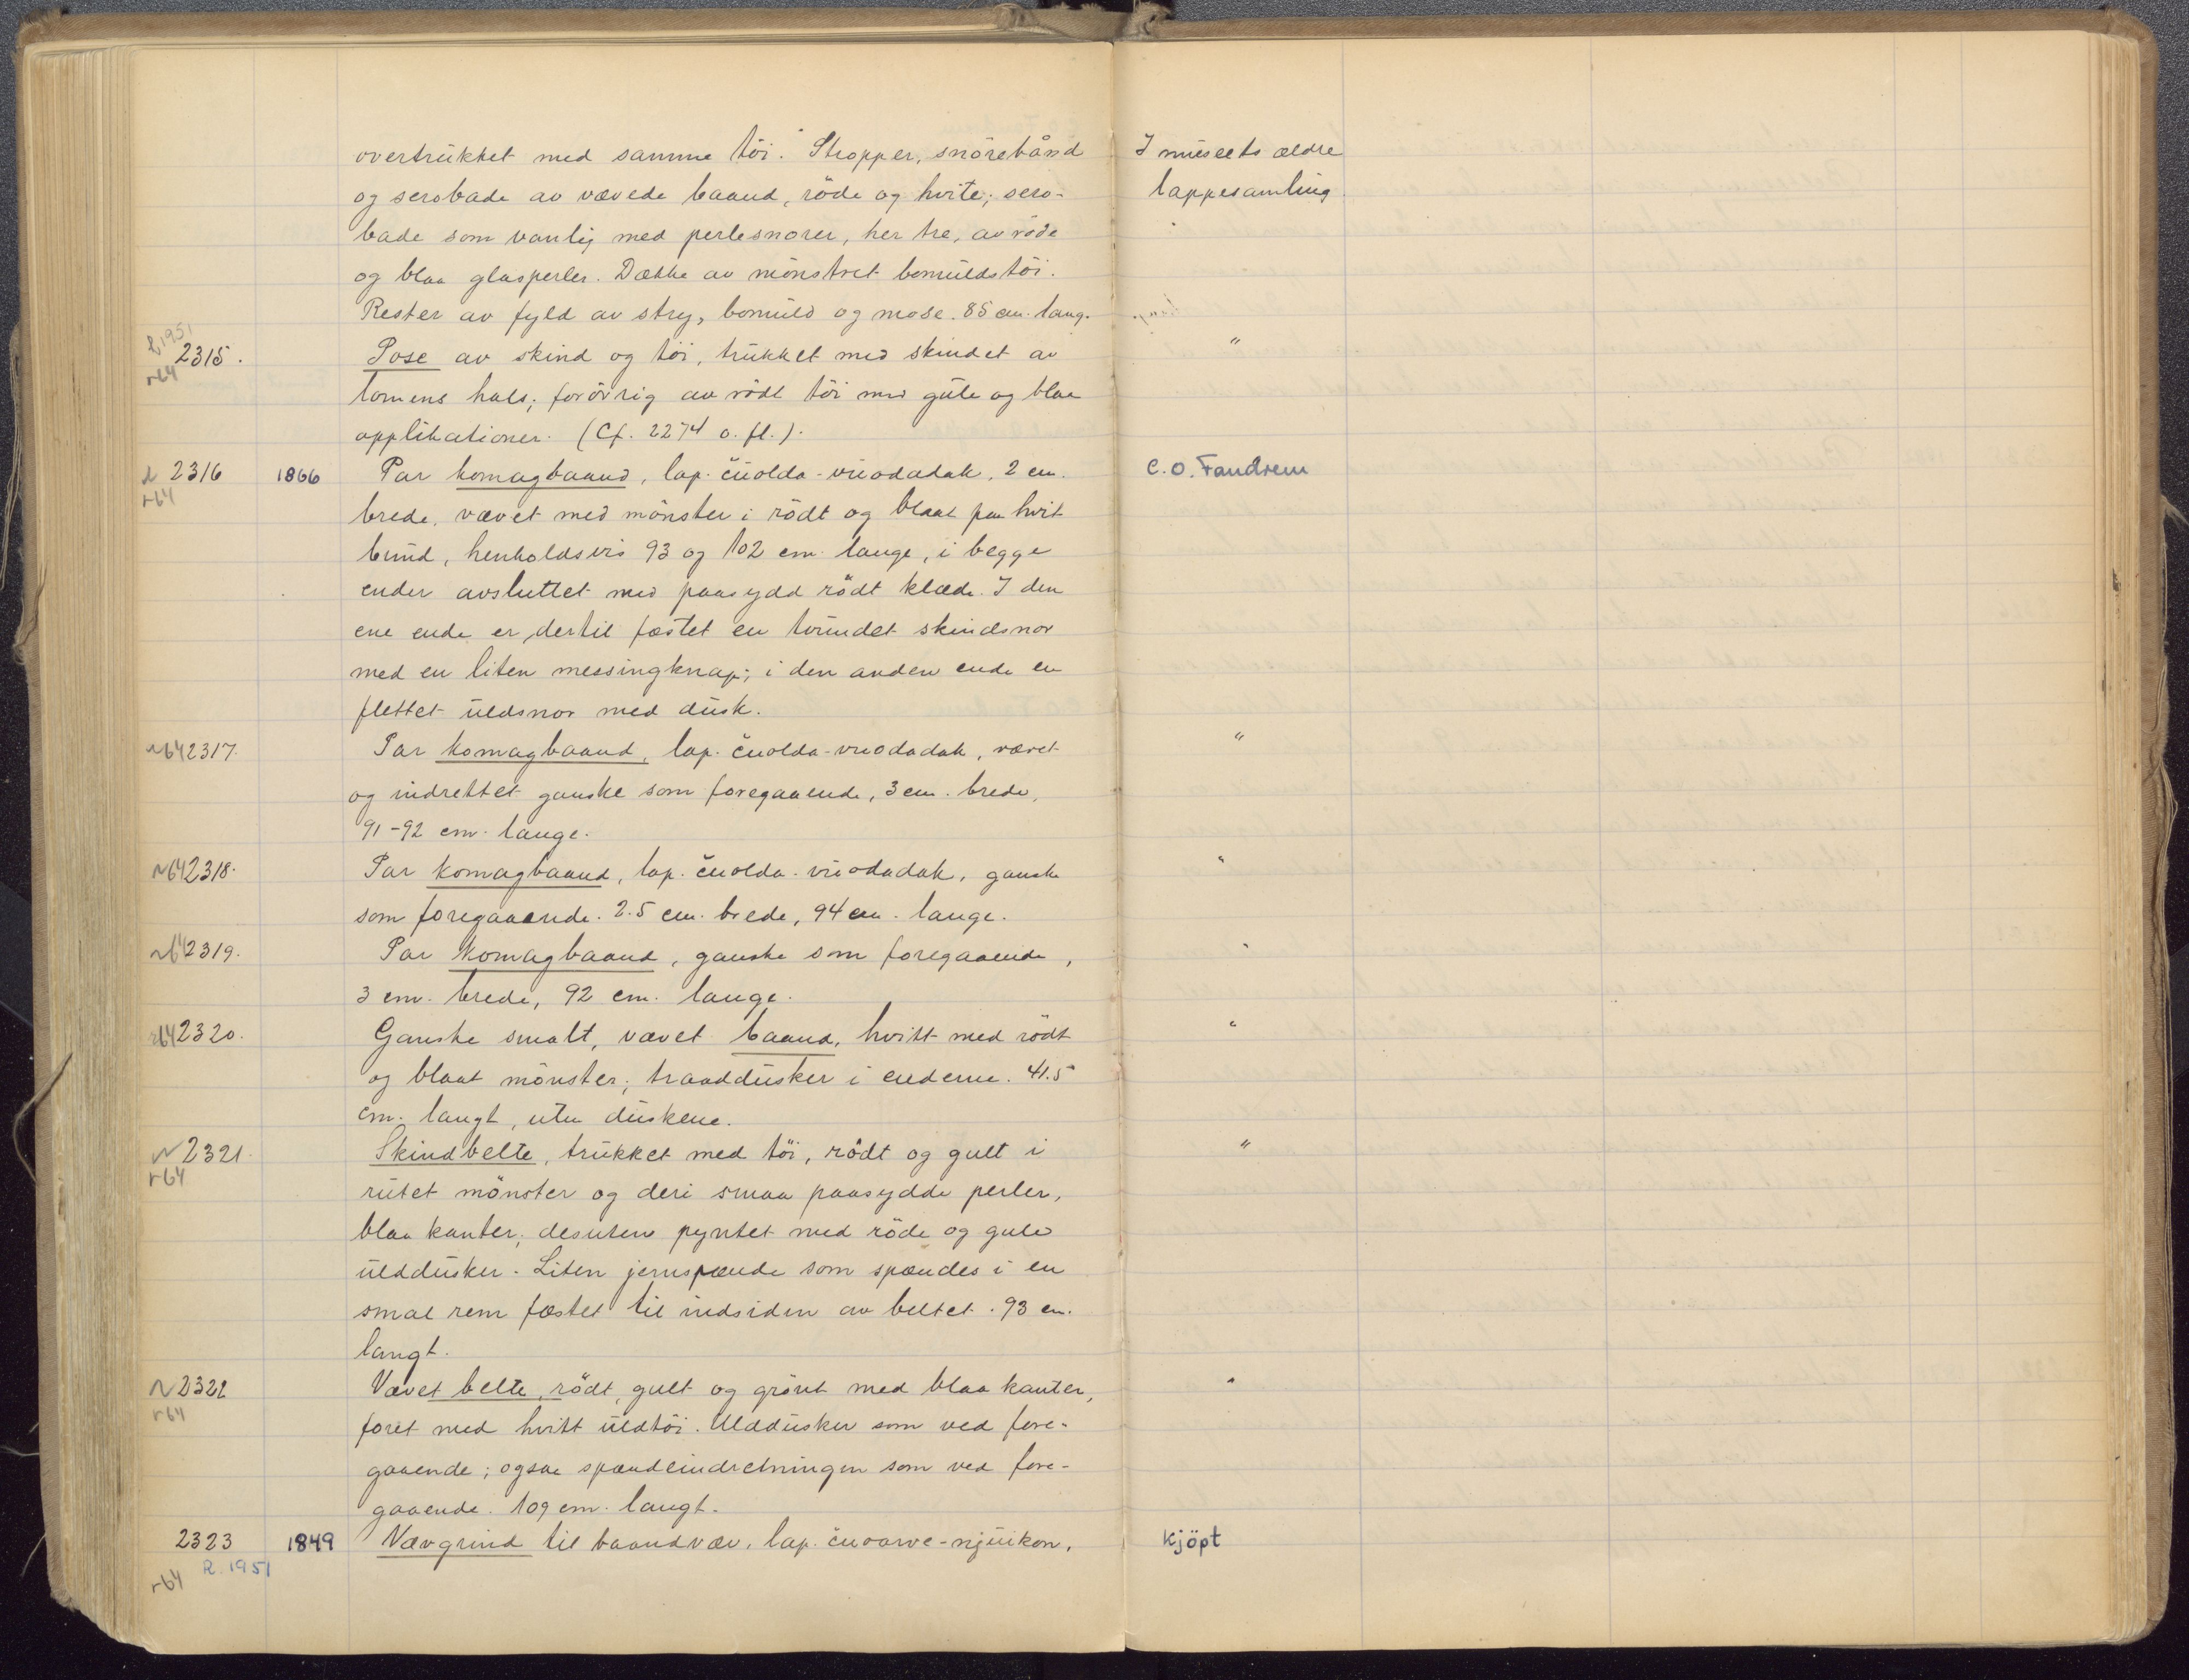 overtrükket med samme töi. Stropper, snörebånd
og serobade av vævede baand, röde og hvite; sero-
bade som vanlig med perlesnorer, her tre, av röde
og blaa glasperler. Dække av mönstret bomüldstöi.
Rester av fyld av stry, bomüld og mose. 85 cm. lang.
I müseets ældre
lappesamling
R 1951
2315.
r64
Pose av skind og töi, trükket med skindet av
lomens hals; forövrig av rödt töi med güle og blaa
applikationer. (Cf. 2274 o. fl.).
"
2316
r64
1866
Par komagbaand, lap. čüolda-vüodadak, 2 cm.
brede, vævet med mönster i rödt og blaat paa hvit
bünd, henholdsvis 93 og 102 cm. lange, i begge
ender avsluttet med paasydd rödt klæde. I den
ene ende er dertil fæstet en tvündet skindsnor
med en liten messingknap; i den anden ende en
flettet üldsnor med düsk.
C. O. Fandrem
r64 2317.
Par komagbaand, lap. čuolda-vuodadak, vævet
og indrettet ganske som foregaaende, 3 cm. brede,
91-92 cm. lange.
"
r64 2318.
Par komagbaand, lap. čuolda-vüodadak, ganske
som foregaaende. 2.5 cm. brede, 94 cm. lange.
"
r64 2319.
Par komagbaand, ganske som foregaaende,
3 cm. brede, 92 cm. lange.
"
r64 2320.
Ganske smalt, vævet baand, hvitt med rödt
og blaat mönster; traaddüsker i enderne. 41.5
cm. langt, uten düskene.
"
2321.
r64
Skindbelte, trükket med töi, rödt og gult i
rütet mönster og deri smaa paasydde perler,
blaa kanter; desuten pyntet med röde og gule
ülddüsker. Liten jernspænde som spændes i en
smal rem fæstet til indsiden av beltet. 93 cm.
langt.
"
2322
r64
Vævet belte, rödt, gult og grönt med blaa kanter,
foret med hvitt üldtöi. Ulddüsker som ved fore-
gaaende; ogsaa spændeindretningen som ved fore-
gaaende. 109 cm. langt.
"
2323
r64 R. 1951
1849
Vævgrind til baandvæv, lap. čuoarve-njuikon,
kjöpt